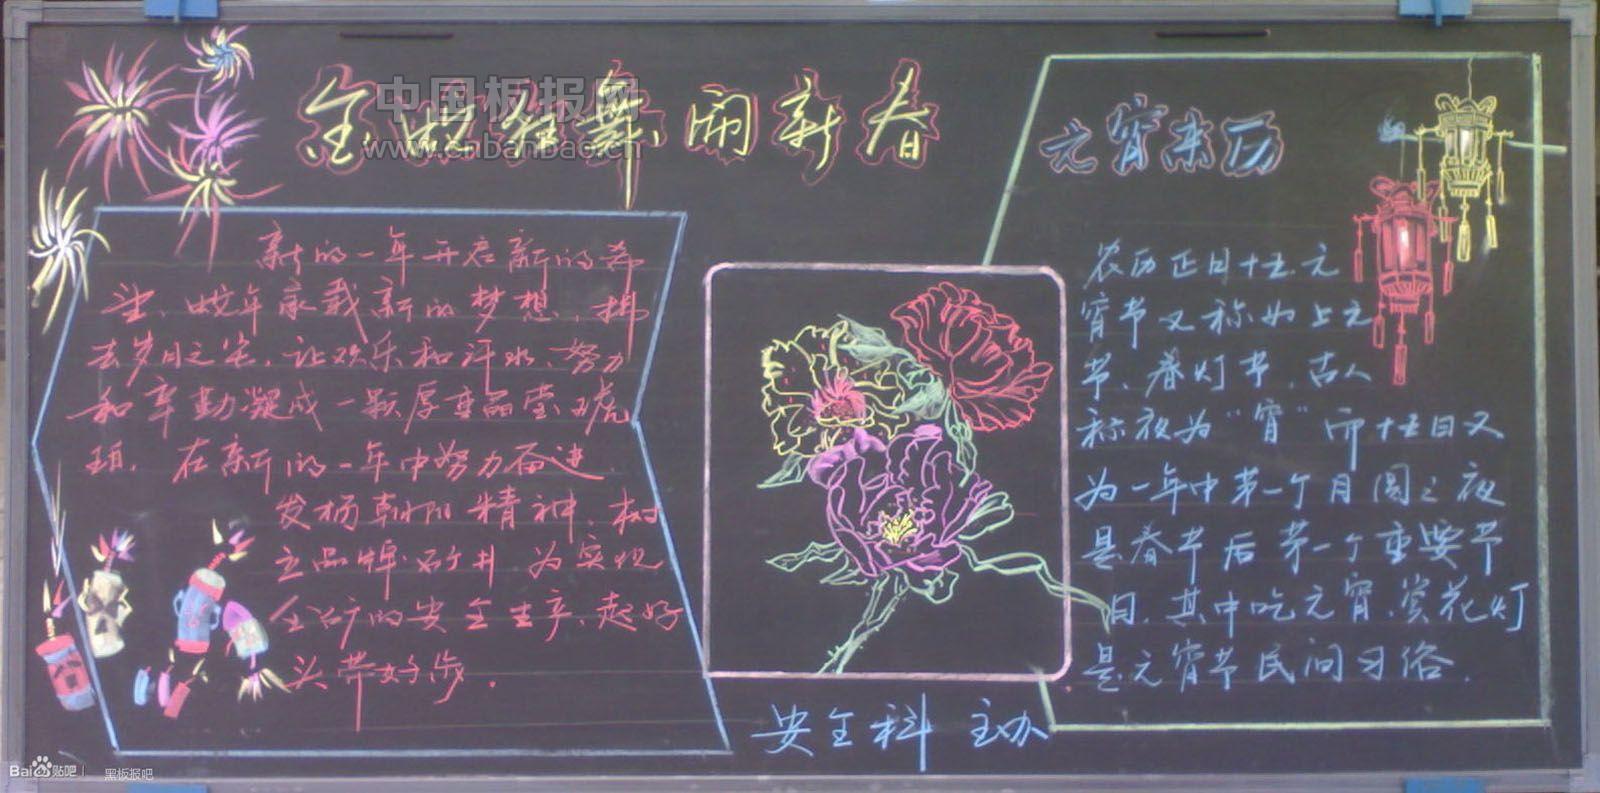 中国板报网
www.cnbanbao.cn
金蛇狂舞 闹新春
新的一年开启新的希
望，蛇年承载新的梦想，拂
去岁月之尘，让欢乐和汗水、努力
和辛勤凝成一颗厚重晶莹琥
珀，在新的一年中努力奋进，
发扬朝阳精神，树
立品牌石井 为实现
全矿的安全生产、起好
头 带好步.
元宵来历
农历正月十五元
宵节又称为上元
节、春灯节，古人
称夜为“宵”而十五日又
为一年中第一个月圆之夜
是春节后第一个重要节
日，其中吃元宵、赏花灯
是元宵节民间习俗.
安全科 主办
Bai 贴吧 黑板报吧